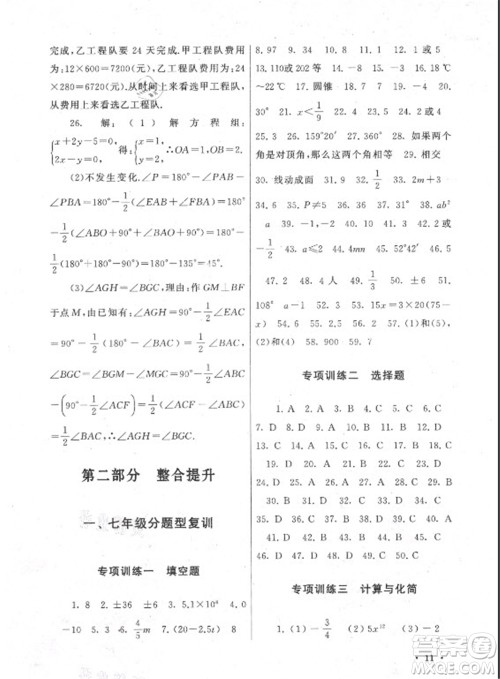 完成,乙工程队要 24 天完成.甲工程队费用
为:12×600=7200(元),乙工程队费用为:24
×280=6720(元).从时间上来看选甲工程
队,从费用上来看选乙工程队.
26. 解:(1)解方程组:
{x+2y-5=0, 2x-y=0, 得:{x=1, y=2, ∴OA=1,OB=2
(2)不发生变化.∠P=180°-∠PAB-
∠PBA=180°-1/2(∠EAB+∠FBA)=180°-
1/2(∠ABO+90°+∠BAO+90°)=180°-
1/2(180°+180°-90°)=45°.
(3)∠AGH=∠BGC.理由如下:作GM⊥BF
于点M,∠AGH=90°-∠EAC=90°-1/2
(180°-∠BAC)=1/2∠BAC,∠BGC=
∠BGM-∠BGM=90°-1/2∠ABC-
(90°-1/2∠ACF)=1/2(∠ACF-∠ABC)=
1/2∠BAC,∴∠AGH=∠BGC.
第二部分 整合提升
一、七年级分题型复训
专项训练一 填空题
1. 8 2. ±36 3. 5.1×10⁴ 4. 0
-10 5. 144 6. -45 7. (20-t) 8
8. 97 9. 1 10. 36 11. 2x 12. 5
13. -4或10 14. 圆锥 15. -9 16. 18℃
~22℃ 17. 30 18. -7 19. 1 20. 41°
21. 5 22. 0 23. -1 24. 27 25. 30
26. x<1/9 27. 35 28. 36 29. 如果两个
角是对顶角,那么这两个角相等 相交
30. 线动成面 31. 1/2 32. 3 33. 2m+3
34. 6 35. 14 36. P≠5 37. ±8 38. ab²
a 39. 4 40. 9 41. 1或2 42. -1/2或
0 43. a≤2 44. 4mn 45. 52°42′ 46.
135 47. -2 48. 1 49. 1/3 50. ±6 51.
108° a-1 52. 63° 53. 5 54. 6 55. 乙
56. (75-x)+(90-x)=3×20(75-
x) 57. (1)和(2),(1)和(5),(2)和(5)
(2)和(4) 58. -900 59. 7
专项训练二 选择题
1. A 2. B 3. D 4. D 5. B 6. B
7. D 8. B 9. C 10. A 11. D 12. C
13. C 14. C 15. D 16. C 17. D 18.
D 19. D 20. A 21. D 22. D 23. A
24. C 25. B 26. A 27. B 28. C 29.
B 30. B 31. C 32. A 33. C 34. B
35. B 36. D 37. B 38. C 39. C 40.
C 41. D 42. A 43. A 44. A 45. C
46. C 47. D 48. C 49. C 50. C 51.
C 52. D 53. D 54. C 55. A
专项训练三 计算与化简
1. (1)-3/4 (2)5x¹² 2. (1)-5
· 11 ·